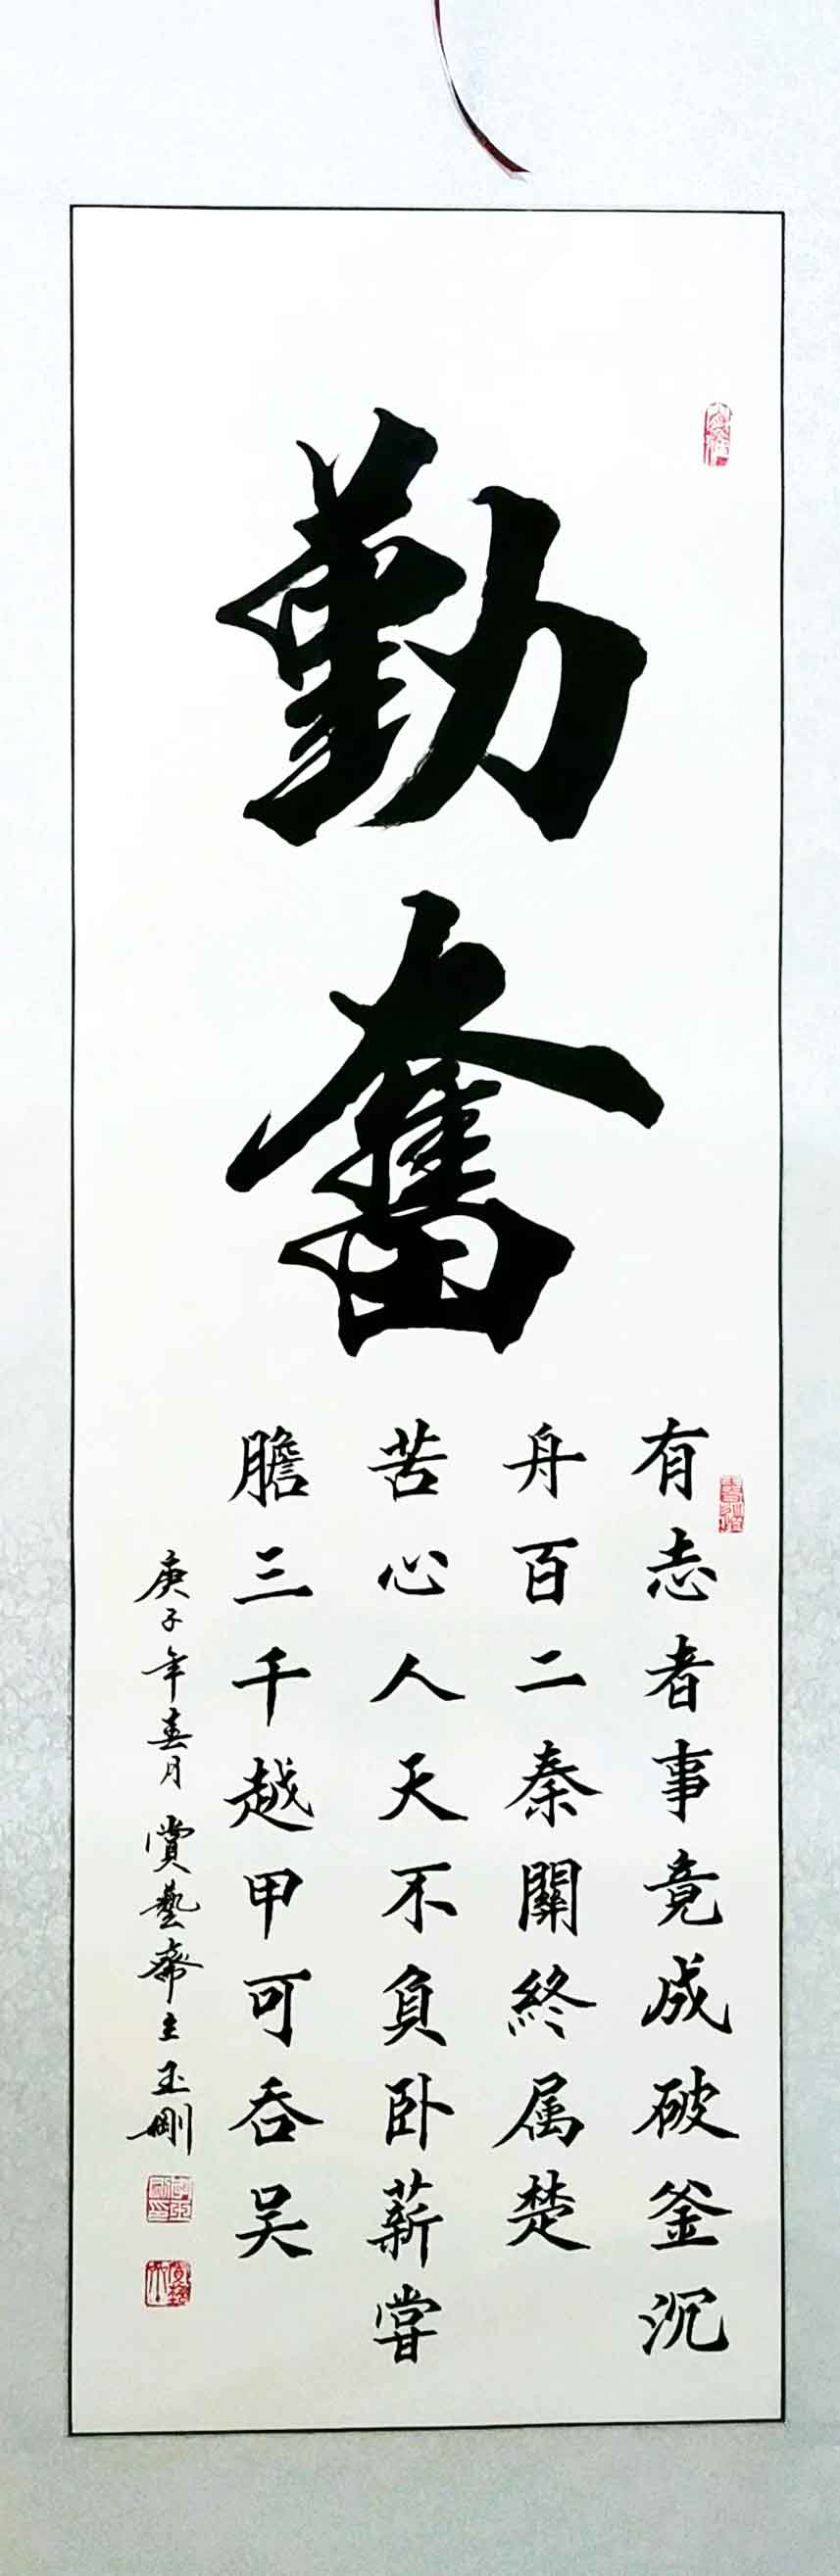 勤奮
有志者事竟成破釜沉
舟百二秦關終属楚
苦心人天不負卧薪嘗
膽三千越甲可吞吴
庚子年春月賞藝齋主玉剛